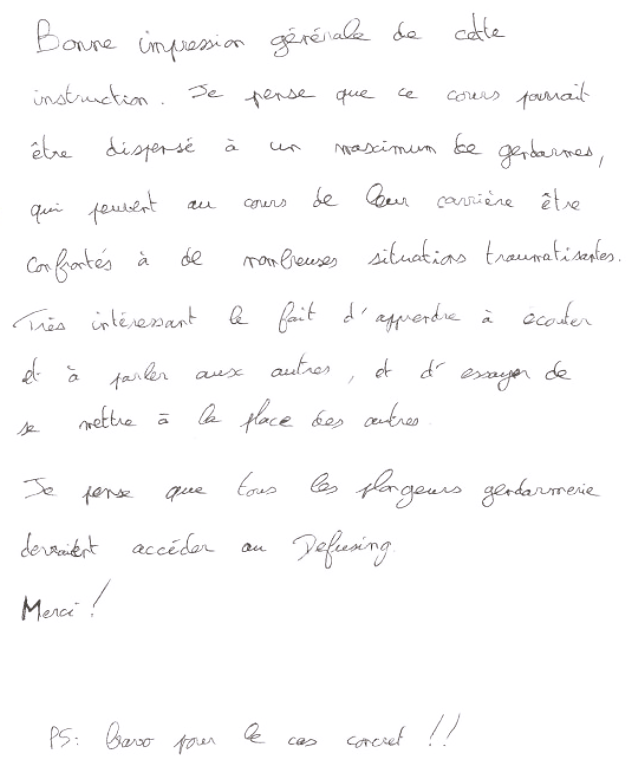 Bonne impression générale de cette
instruction. Je pense que ce cours pourrait
être dispensé à un maximum de gendarmes,
qui peuvent au cours de leur carrière être
confrontés à de nombreuses situations traumatisantes.
Très intéressant le fait d'apprendre à écouter
et à parler aux autres, et d'essayer de
se mettre à la place des autres.
Je pense que tous les plongeurs gendarmerie
devraient accéder au Defusing.
Merci !
PS: Bravo pour le cas concret !!